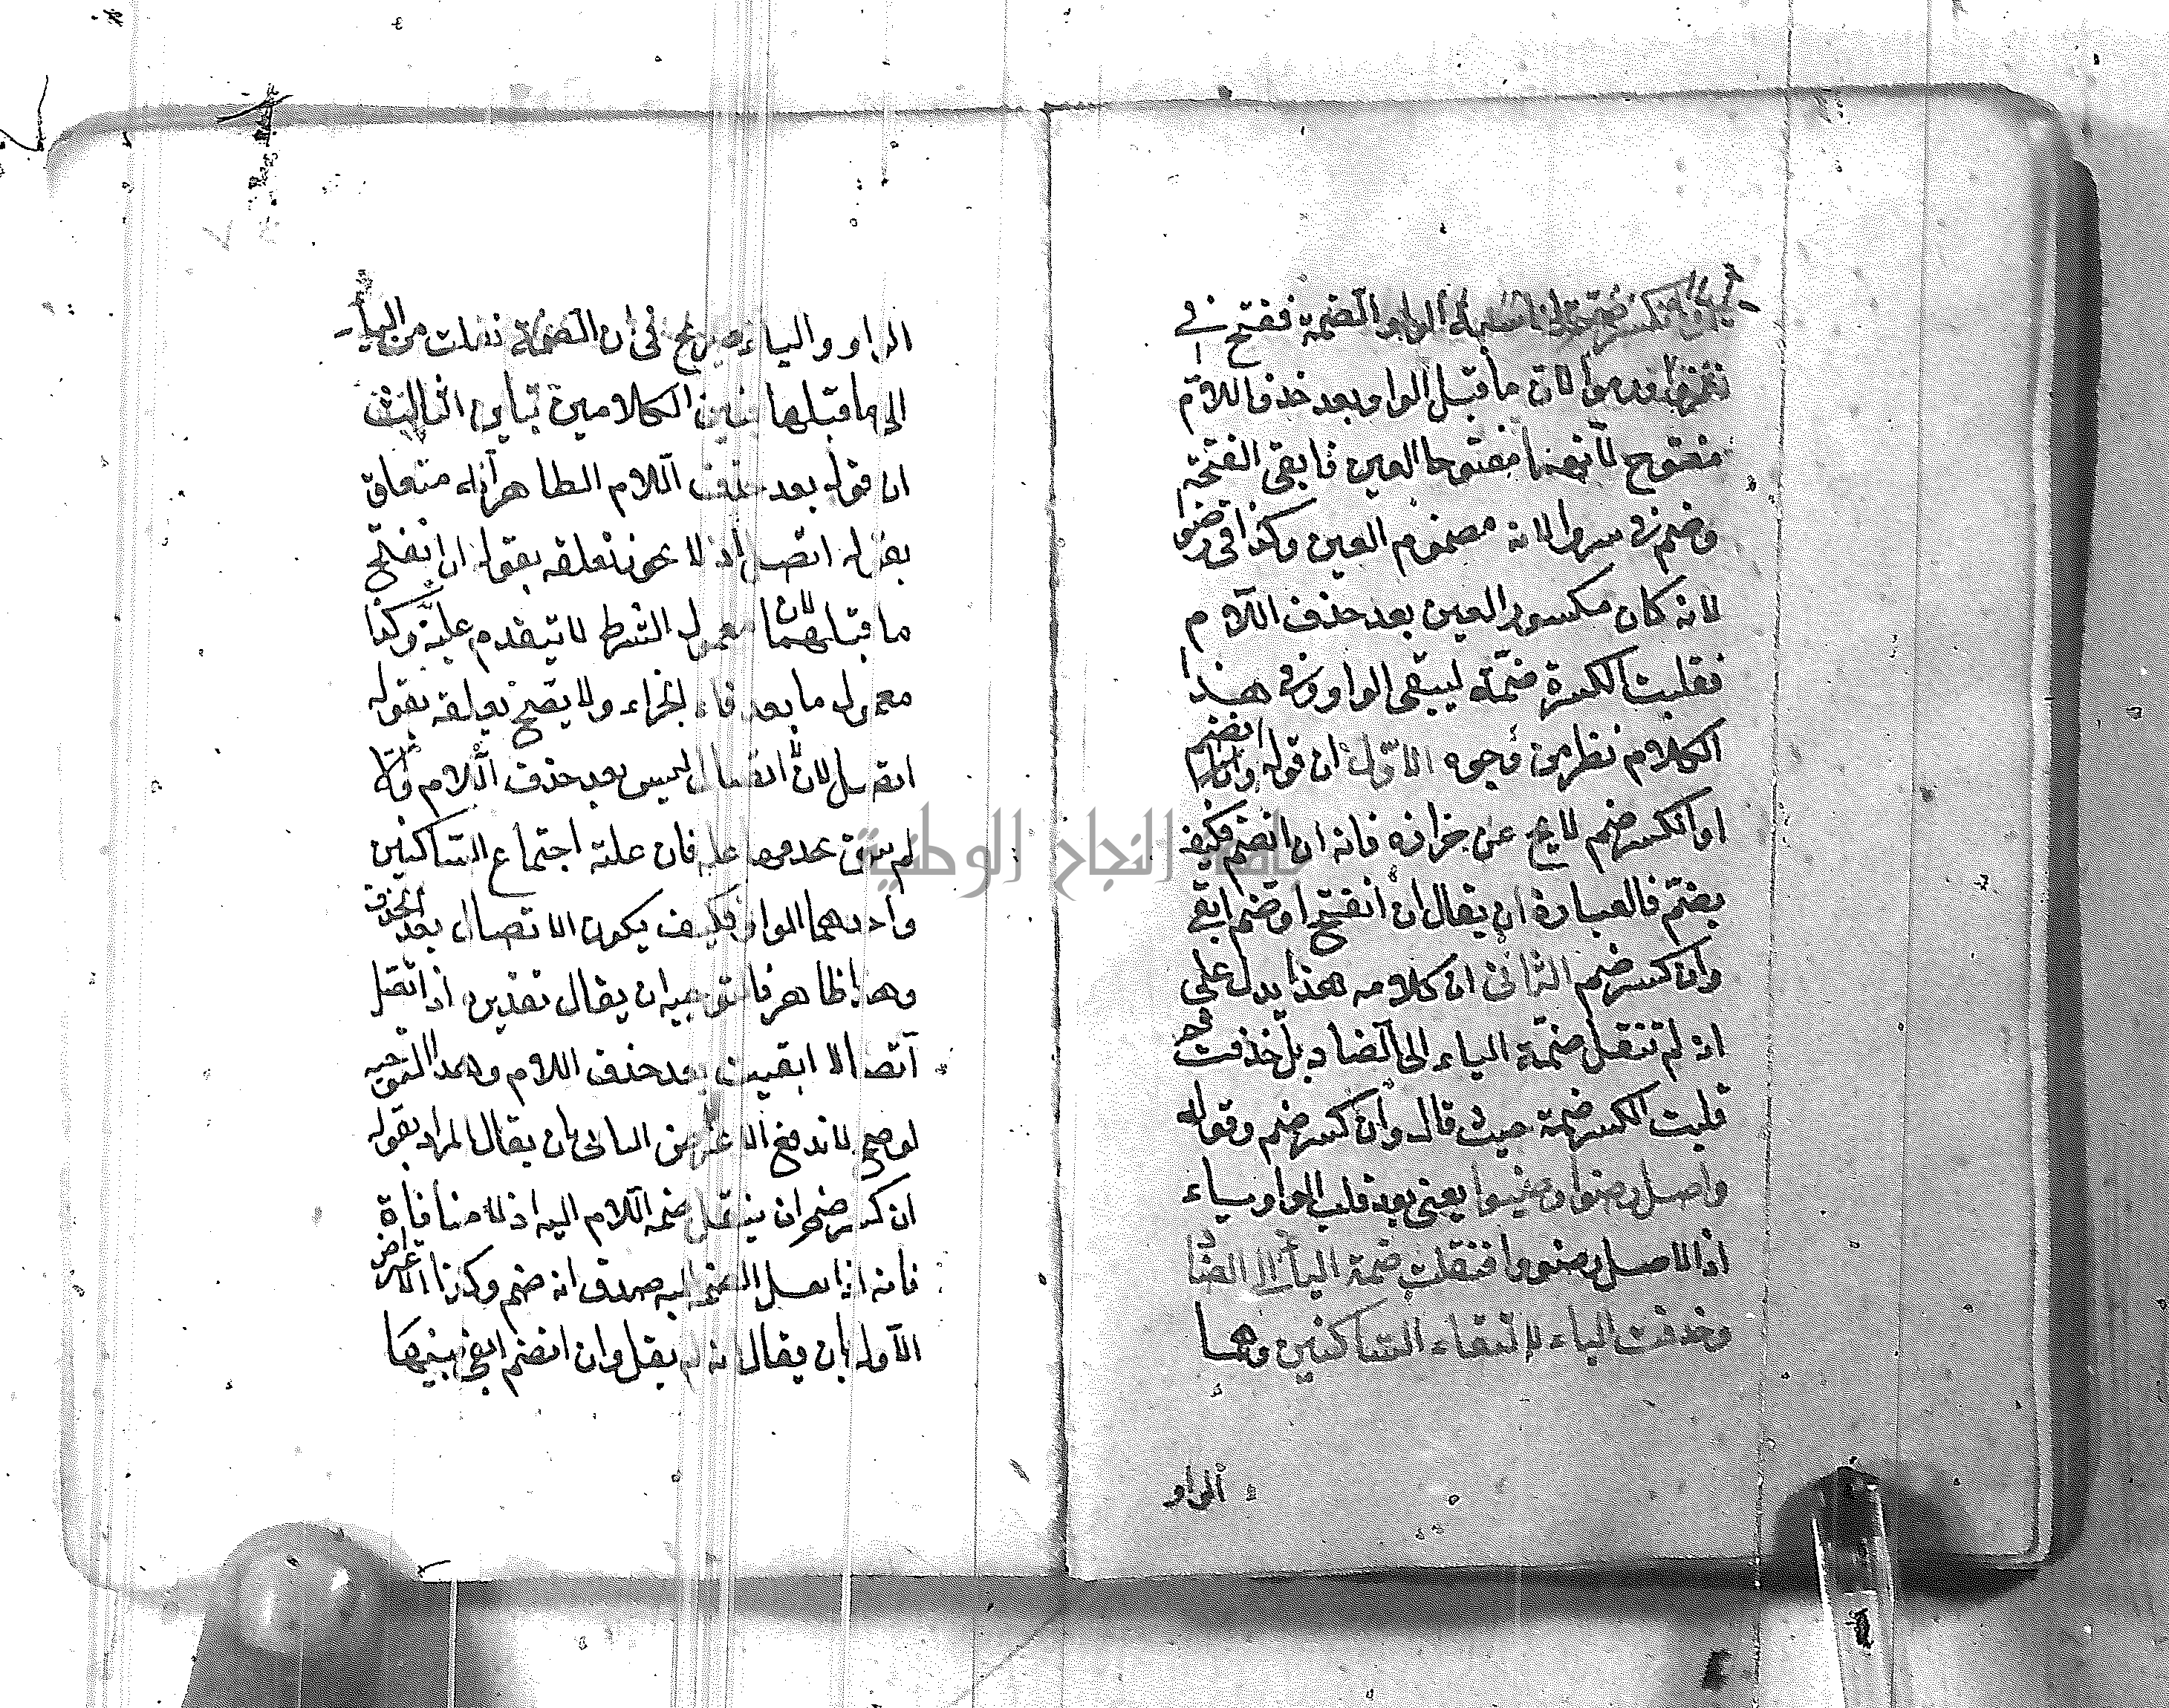 الواو الضمة ففتح في
لان ما قبل الواو بعد حذف اللام
مفتوح لانهما مفتوحا العين فابقي الفتحة
وضم في سروا لانه مضموم العين وكذا في رضوا
لانه كان مكسور العين بعد حذف اللام
فقلبت الكسرة ضمة ليبقى الواو وفي هذا
الكلام نظر من وجوه الاول ان قوله وان انضم
او انكسر ضم لا يخ عن حزازه فانه ان انضم فكيف
يضم فالعبارة ان يقال ان انفتح او ضم ابقي
وان كسر ضم الثاني ان كلامه هذا يدل على
انه لم تنقل ضمة الياء الى الضاد بل حذفت
قلبت الكسر ضمة حيث قال وان كسر ضم وقوله
واصل رضوا رضيوا يعني بعد قلب الواو ياء
اذ الاصل رضووا فنقلت ضمة الياء الى الضاد
وحذفت الياء لالتقاء الساكنين وهما
الواو
الواو والياء صريح في ان الضمة نقلت من الياء
الى ما قبلها فبين الكلامين تباين الثالث
ان قوله بعد حذف اللام الظاهر انه متعلق
بقوله اتصل اذ لا يجوز تعلقه بقوله ان انفتح
ما قبلهما لان معمول الشرط لا يتقدم عليه وكذا
معمول ما بعد فاء الجزاء ولا يصح تعلقه بقوله
اتصل لان اتصال ليس بعد حذف اللام
فان علته اجتماع الساكنين
واحدهما الواو فكيف يكون الاتصال بعد الحذف
وهذا ظاهر فالتوجيه ان يقال تقديره اذا اتصل
اتصالا ابقيت بعد حذف اللام وهذا التوجيه
لو صح لاندفع الاعتراض الثاني بان يقال المراد بقوله
ان كسر ضم ان ينقل ضمة اللام اليه اذ لا منافاة
فانه اذا نقل الضم اليه صدق انه ضم وكذا الاعتراض
الاول بان يقال انه لم يقل وان انضم ابقي تنبيها
جامعة النجاح الوطنية